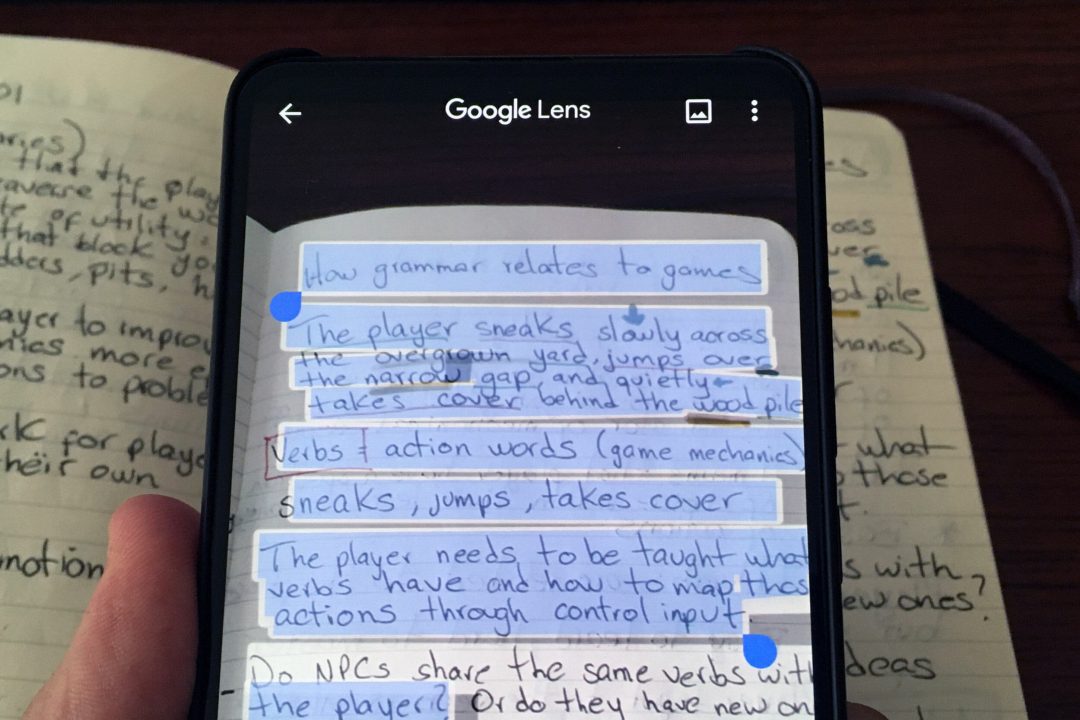 that the play
averse the wo
te of utility.
that block yo
dders, pits, h
ayer to improv
nics more e
ons to proble
rk for playe
their own
notion
Google Lens
How grammar relates to games
The player sneaks slowly across
the overgrown yard, jumps over
the narrow gap, and quietly
takes cover behind the wood pile
Verbs = action words (game mechanics)
sneaks, jumps, takes cover
The player needs to be taught what
verbs have and how to map thos
actions through control input.
- Do NPCs share the same verbs with
the player? Or do they have new on
oss
ver
od pile
hanics)
what
those
s with
ew ones?
deas